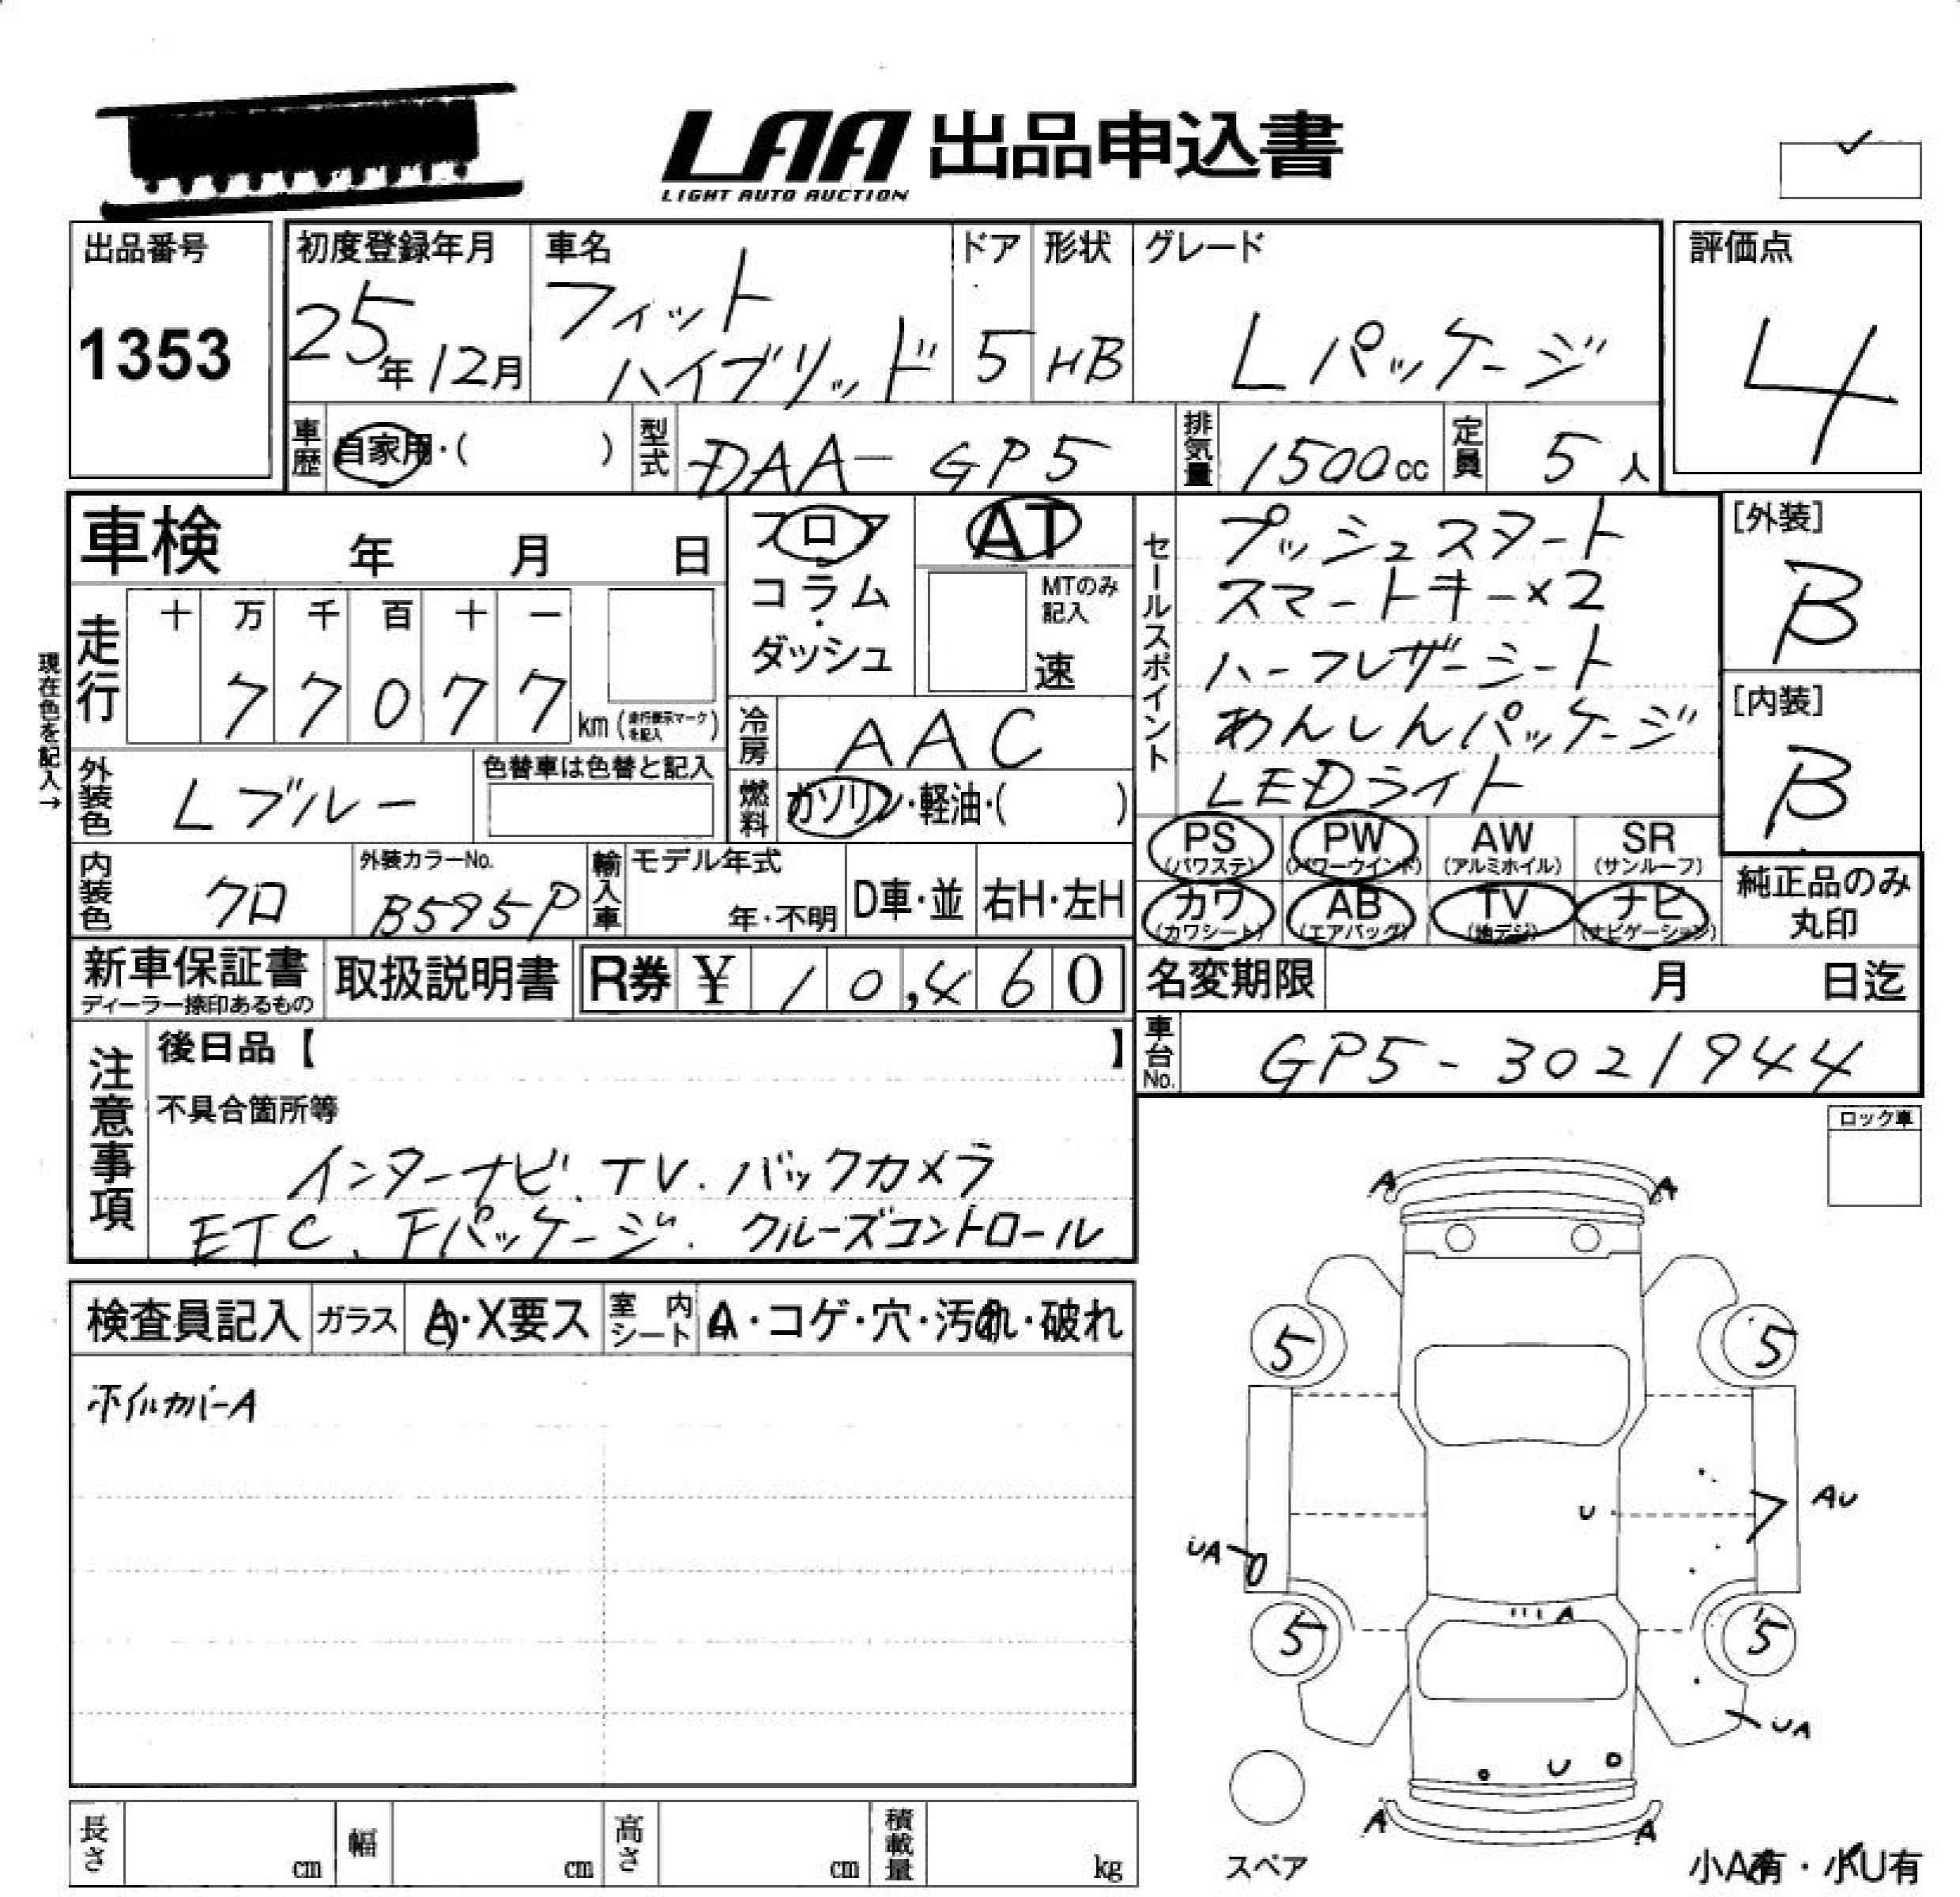 LAA 出品申込書
LIGHT AUTO AUCTION
出品番号
1353
初度登録年月
25年12月
車名
フィット
ハイブリッド
ドア
5
形状
HB
グレード
Lパッケージ
評価点
4
車歴 自家用・( )
型式 DAA-GP5
排気量 1500cc
定員 5人
車検 年 月 日
フロア
コラム
・
ダッシュ
AT
MTのみ
記入
速
セールスポイント
プッシュスタート
スマートキー×2
ハーフレザーシート
あんしんパッケージ
LEDライト
[外装]
B
[内装]
B
現在色を記入→
走行
十 万 千 百 十 一
77077
km(走行表示マークを記入)
冷房 AAC
燃料 ガソリン・軽油・( )
外装色 Lブルー
色替車は色替と記入
PS
(パワステ)
PW
(パワーウインド)
AW
(アルミホイル)
SR
(サンルーフ)
カワ
(カワシート)
AB
(エアバッグ)
TV
(地デジ)
ナビ
(ナビゲーション)
純正品のみ
丸印
内装色 クロ
外装カラーNo.
B595P
輸入車
モデル年式
年・不明
D車・並
右H・左H
新車保証書
ディーラー捺印あるもの
取扱説明書
R券 ¥ 10,460
名変期限 月 日迄
車台No. GP5-3021944
注意事項
後日品【 】
不具合箇所等
インターナビ、TV.バックカメラ
ETC、Fパッケージ.クルーズコントロール
ロック車
検査員記入 ガラス A・X要ス 室内シート A・コゲ・穴・汚れ・破れ
ホイルカバーA
A A
5 5
U AU
UA
A
5 5
UA
U
A A
スペア
小A有・小U有
長さ cm 幅 cm 高さ cm 積載量 kg